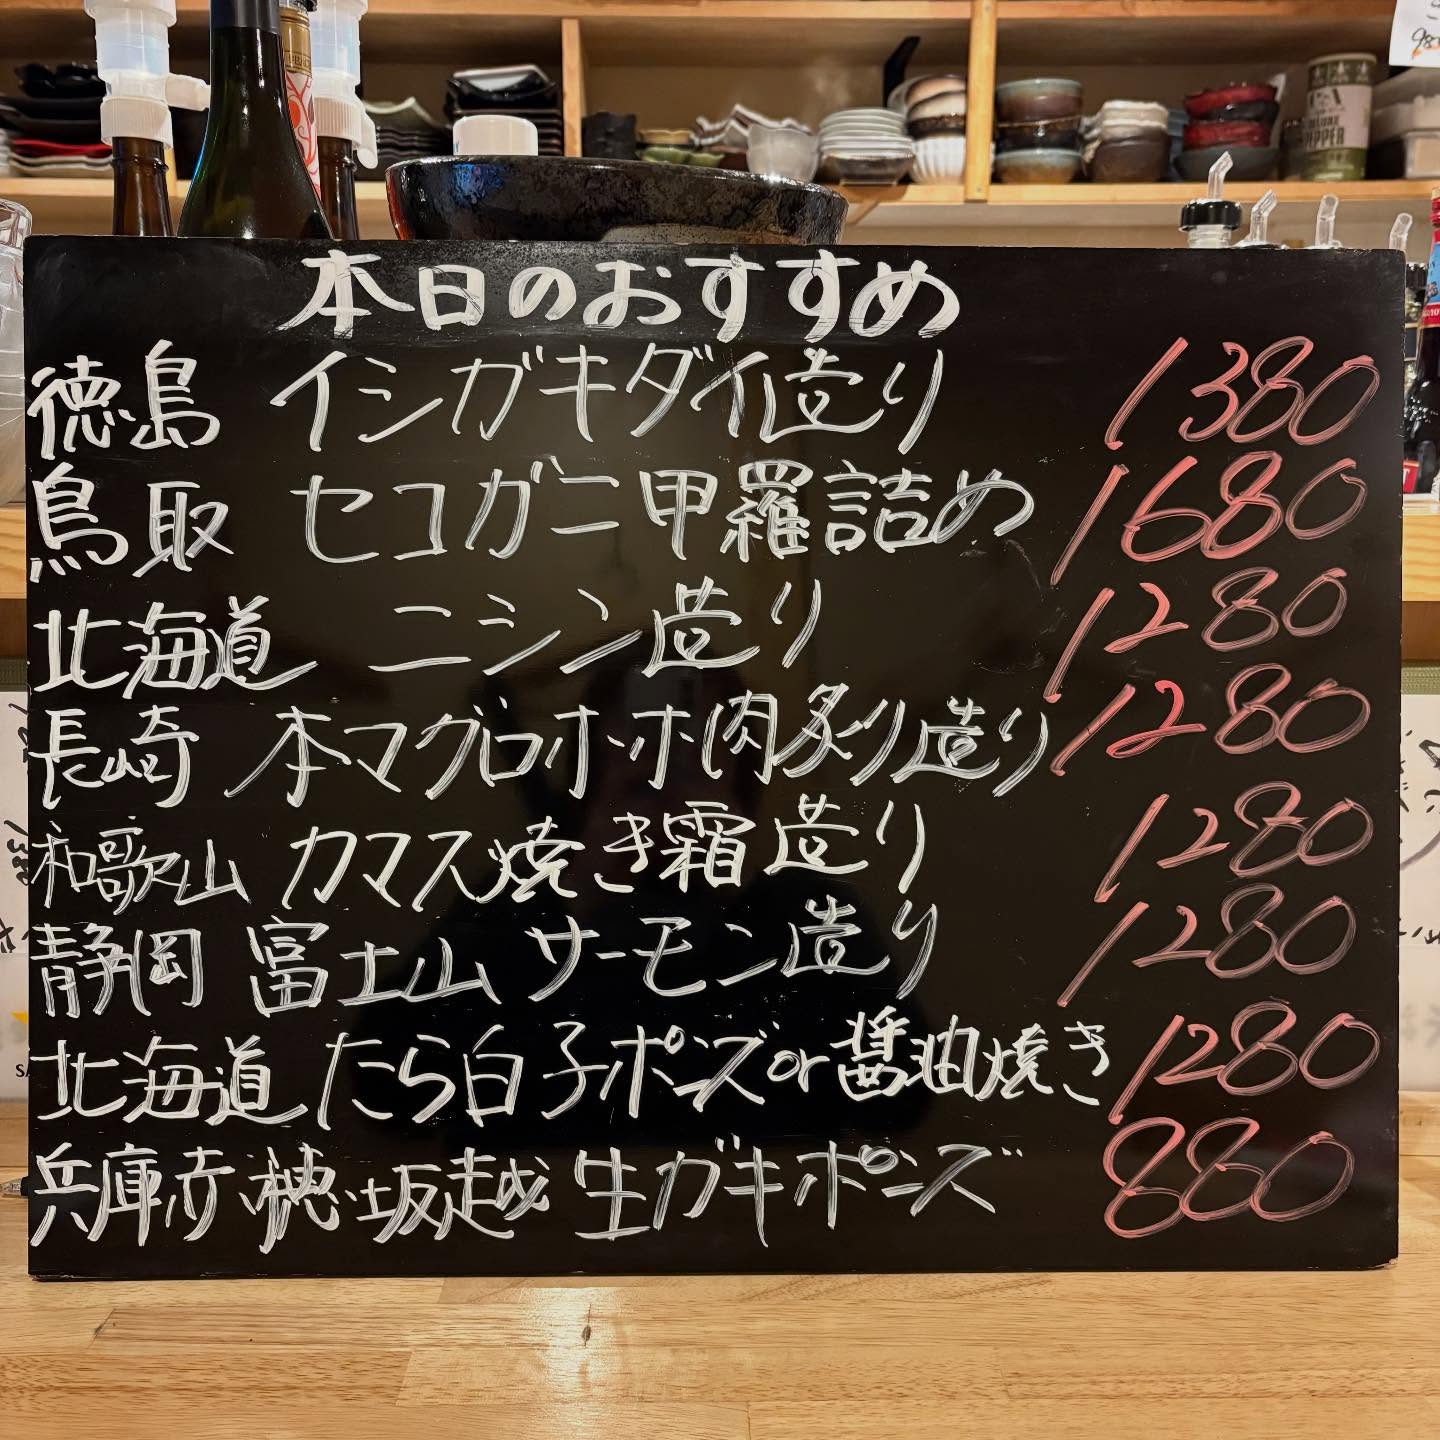 本日のおすすめ
徳島 イシガキダイ造り 1380
鳥取 セコガニ甲羅詰め 1680
北海道 ニシン造り 1280
長崎 本マグロホホ肉炙り造り 1280
和歌山 カマス焼き霜造り 1280
静岡 富士山サーモン造り 1280
北海道 たら白子ポンズor醤油焼き 1280
兵庫赤穂坂越 生ガキポンズ 880